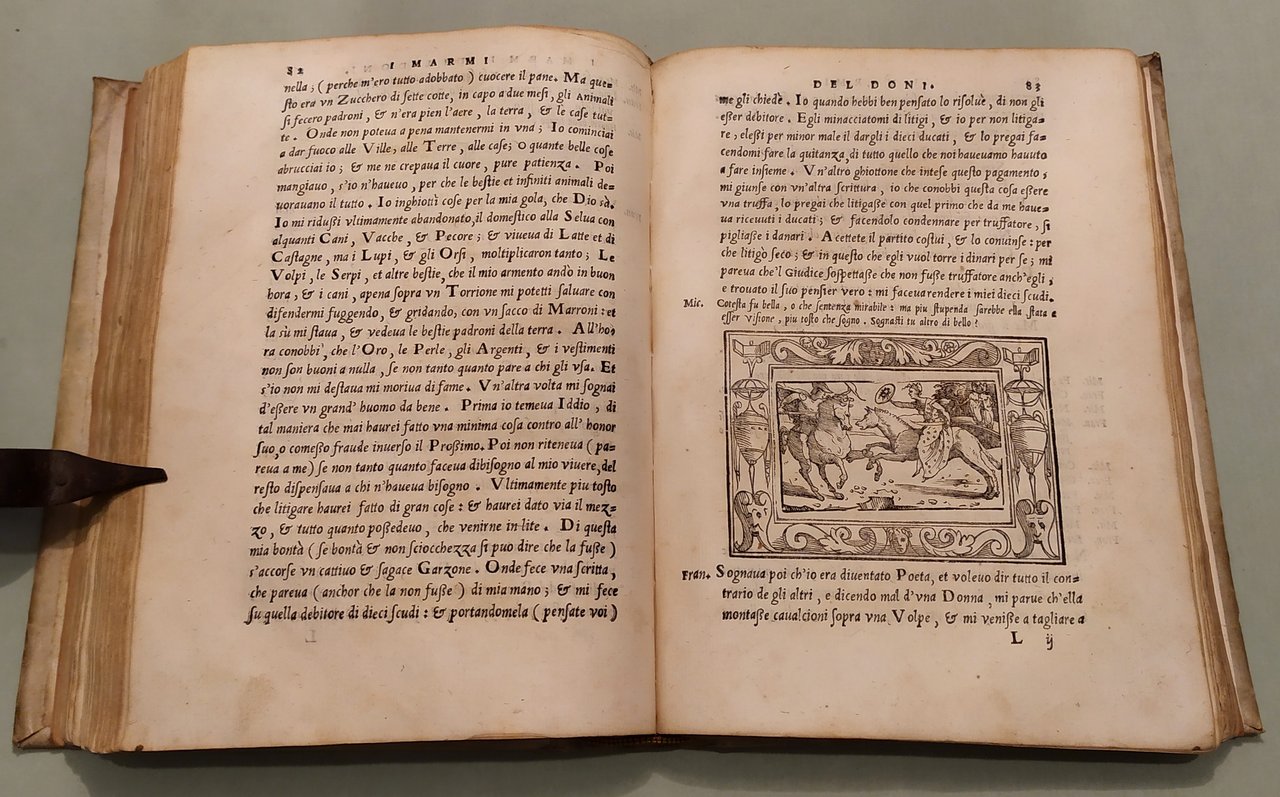 82 I MARMI
nella; (perche m'ero tutto adobbato) cuocere il pane. Ma que=
ſto era vn Zucchero di ſette cotte, in capo a due meſi, gli Animali
ſi fecero padroni, & n'era pien l'aere, la terra, & le caſe tut=
te. Onde non poteua a pena mantenermi in vna; Io cominciai
a dar fuoco alle Ville, alle Terre, alle caſe; o quante belle coſe
abrucciai io; & me ne crepaua il cuore, pure patienza. Poi
mangiauo, s'io n'haueuo, per che le beſtie et infiniti animali de=
uorauano il tutto. Io inghiotti coſe per la mia gola, che Dio sà.
Io mi riduſſi vltimamente abandonato, il domeſtico alla Selua con
alquanti Cani, Vacche, & Pecore; & viueua di Latte et di
Caſtagne, ma i Lupi, & gli Orſi, moltiplicaron tanto; Le
Volpi, le Serpi, et altre beſtie, che il mio armento andò in buon
hora, & i cani, apena ſopra vn Torrione mi potetti ſaluare con
difendermi fuggendo, & gridando, con vn ſacco di Marroni: et
la sù mi ſtaua, & vedeua le beſtie padroni della terra. All'ho=
ra conobbi, che l'Oro, le Perle, gli Argenti, & i veſtimenti
non ſon buoni a nulla, ſe non tanto quanto pare a chi gli vſa. Et
s'io non mi deſtaua mi moriua di fame. Vn'altra volta mi ſognai
d'eßere vn grand' huomo da bene. Prima io temeua Iddio, di
tal maniera che mai haurei fatto vna minima coſa contro all' honor
ſuo, o comeßo fraude inuerſo il Proßimo. Poi non riteneua (pa=
reua a me) ſe non tanto quanto faceua dibiſogno al mio viuere, del
reſto diſpenſaua a chi n'haueua biſogno. Vltimamente piu toſto
che litigare haurei fatto di gran coſe: & haurei dato via il mez=
zo, & tutto quanto poßedeuo, che venirne in lite. Di queſta
mia bontà (ſe bontà & non ſciocchezza ſi puo dire che la fuße)
s'accorſe vn cattiuo & ſagace Garzone. Onde fece vna ſcritta,
che pareua (anchor che la non fuße) di mia mano; & mi fece
ſu quella debitore di dieci ſcudi: & portandomela (penſate voi)
DEL DONI. 83
me gli chiedè. Io quando hebbi ben penſato lo riſoluè, di non gli
eßer debitore. Egli minacciatomi di litigi, & io per non litiga=
re, eleßi per minor male il dargli i dieci ducati, & lo pregai fa=
cendomi fare la quitanza, di tutto quello che noi haueuamo hauuto
a fare inſieme. Vn'altro ghiottone che inteſe queſto pagamento,
mi giunſe con vn'altra ſcrittura, io che conobbi queſta coſa eßere
vna truffa, lo pregai che litigaße con quel primo che da me haue=
ua riceuuti i ducati; & facendolo condennare per truffatore, ſi
pigliaße i danari. Acettete il partito coſtui, & lo conuinſe: per
che litigò ſeco; & in queſto che egli vuol torre i dinari per ſe; mi
pareua che'l Giudice ſoſpettaße che non fuße truffatore anch'egli,
e trouato il ſuo penſier vero: mi faceua rendere i miei dieci ſcudi.
Mic. Coteſta fu bella, o che ſentenza mirabile: ma piu ſtupenda ſarebbe ella ſtata a
eſſer viſione, piu toſto che ſogno. Sognaſti tu altro di bello?
Fran. Sognaua poi ch'io era diuentato Poeta, et voleuo dir tutto il con=
trario de gli altri, e dicendo mal d'vna Donna, mi parue ch'ella
montaße caualcioni ſopra vna Volpe, & mi veniße a tagliare a
L ij